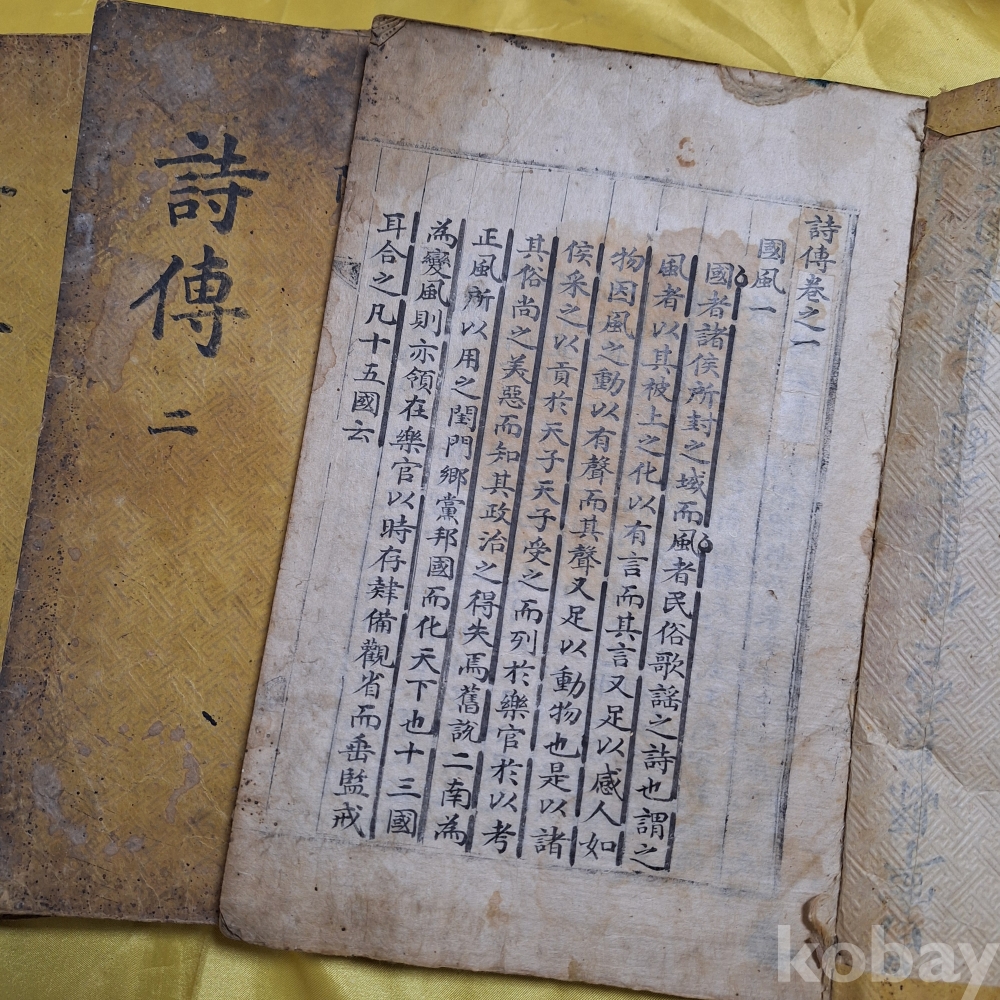 詩傳卷之一
國風一
國者諸侯所封之域而風者民俗歌謠之詩也謂之
風者以其被上之化以有言而其言又足以感人如
物因風之動以有聲而其聲又足以動物也是以諸
侯采之以貢於天子天子受之而列於樂官於以考
其俗尚之美惡而知其政治之得失焉舊說二南為
正風所以用之閨門鄉黨邦國而化天下也十三國
為變風則亦領在樂官以時存肄備觀省而垂監戒
耳合之凡十五國云
詩傳 二
kobay